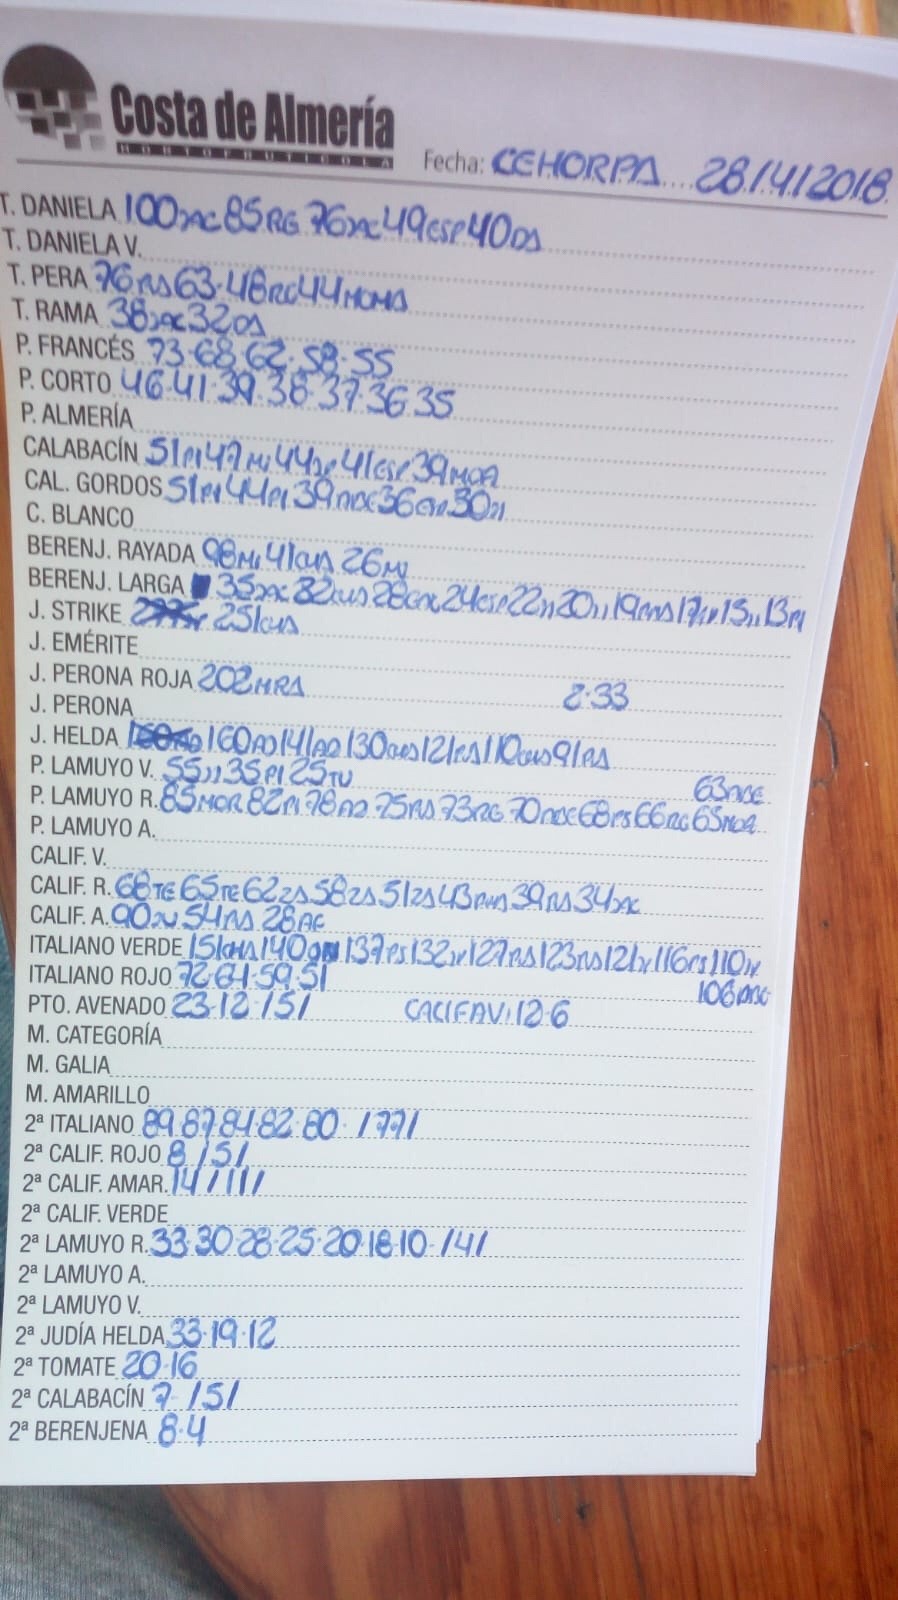 Costa de Almería
HORTOFRUTICOLA
Fecha: CEHORPA 28/4/2018
T. DANIELA 100 85RG 76 49CSP 40
T. DANIELA V.
T. PERA 76 63·48RG 44
T. RAMA 38 32
P. FRANCÉS 73·68·62·58·55
P. CORTO 46·41·39·38·37·36·35
P. ALMERÍA
CALABACÍN 51PI 47 44 41CSP 39MOR
CAL. GORDOS 51PI 44PI 39 36 30
C. BLANCO
BERENJ. RAYADA 98 41 26
BERENJ. LARGA 35 32 28 24CSP 22 20 19 17 15 13PI
J. STRIKE 251
J. EMÉRITE
J. PERONA ROJA 202MRA 2·33
J. PERONA
J. HELDA 160 141 130 121 110 91
P. LAMUYO V. 55 35PI 25TU 63
P. LAMUYO R. 85MOR 82PI 78 75 73RG 70 68PS 66RG 65MOR
P. LAMUYO A.
CALIF. V.
CALIF. R. 68TE 65TE 62ZA 58ZA 51ZA 43 39 34
CALIF. A. 90 54 28AE
ITALIANO VERDE 151 140 137PS 132 127 123 121 116PS 110
ITALIANO ROJO 72·64·59·51 106
PTO. AVENADO 23·12·/5/ CALIF AV: 12·6
M. CATEGORÍA
M. GALIA
M. AMARILLO
2ª ITALIANO 89·87·84·82·80· /77/
2ª CALIF. ROJO 8 /5/
2ª CALIF. AMAR. 14 /11/
2ª CALIF. VERDE
2ª LAMUYO R. 33·30·28·25·20·18·10· /4/
2ª LAMUYO A.
2ª LAMUYO V.
2ª JUDÍA HELDA 33·19·12
2ª TOMATE 20·16
2ª CALABACÍN 7· /5/
2ª BERENJENA 8·4